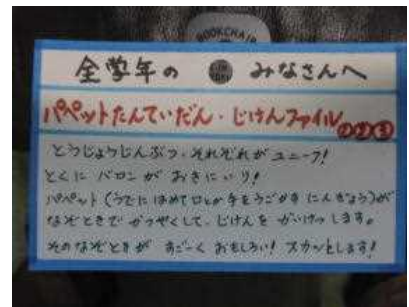 BOOKCHAIR
全学年の みなさんへ
パペットたんていだん・じけんファイル①②③
とうじょうじんぶつ、それぞれがユニーク!
とくに バロンが おきにいり!
パペット(うでにはめて口とか手をうごかす にんぎょう)が
なぞときで かつやくして、じけんを かいけつします。
そのなぞときが すごーく おもしろい! スカッとします!